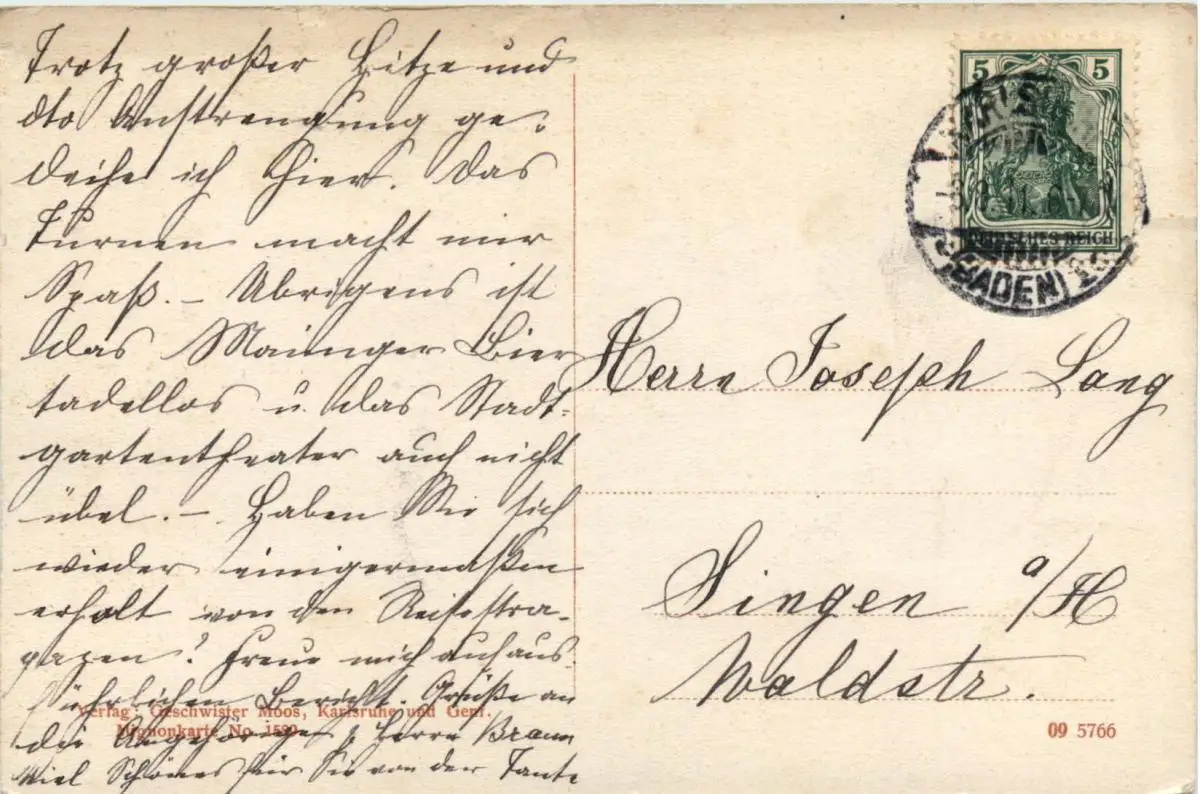 Trotz großer Hitze und
dto Anstrengung ge-
deihe ich hier. Das
Turnen macht mir
Spaß. – Übrigens ist
das Maininger Bier
tadellos u. das Stadt-
gartentheater auch nicht
übel. – Haben Sie sich
wieder einigermaßen
erholt von den Reisestra-
pazen? Freue mich auf aus-
führlichen Bericht. Grüße an
die Angehörigen, Herrn Braun
Viel Schönes für Sie von der Tante
Verlag: Geschwister Moos, Karlsruhe und Genf.
Mignonkarte No.
09 5766
5 5
DEUTSCHES REICH
(BADEN)
Herrn Joseph Lang
Singen a/H
Waldstr.